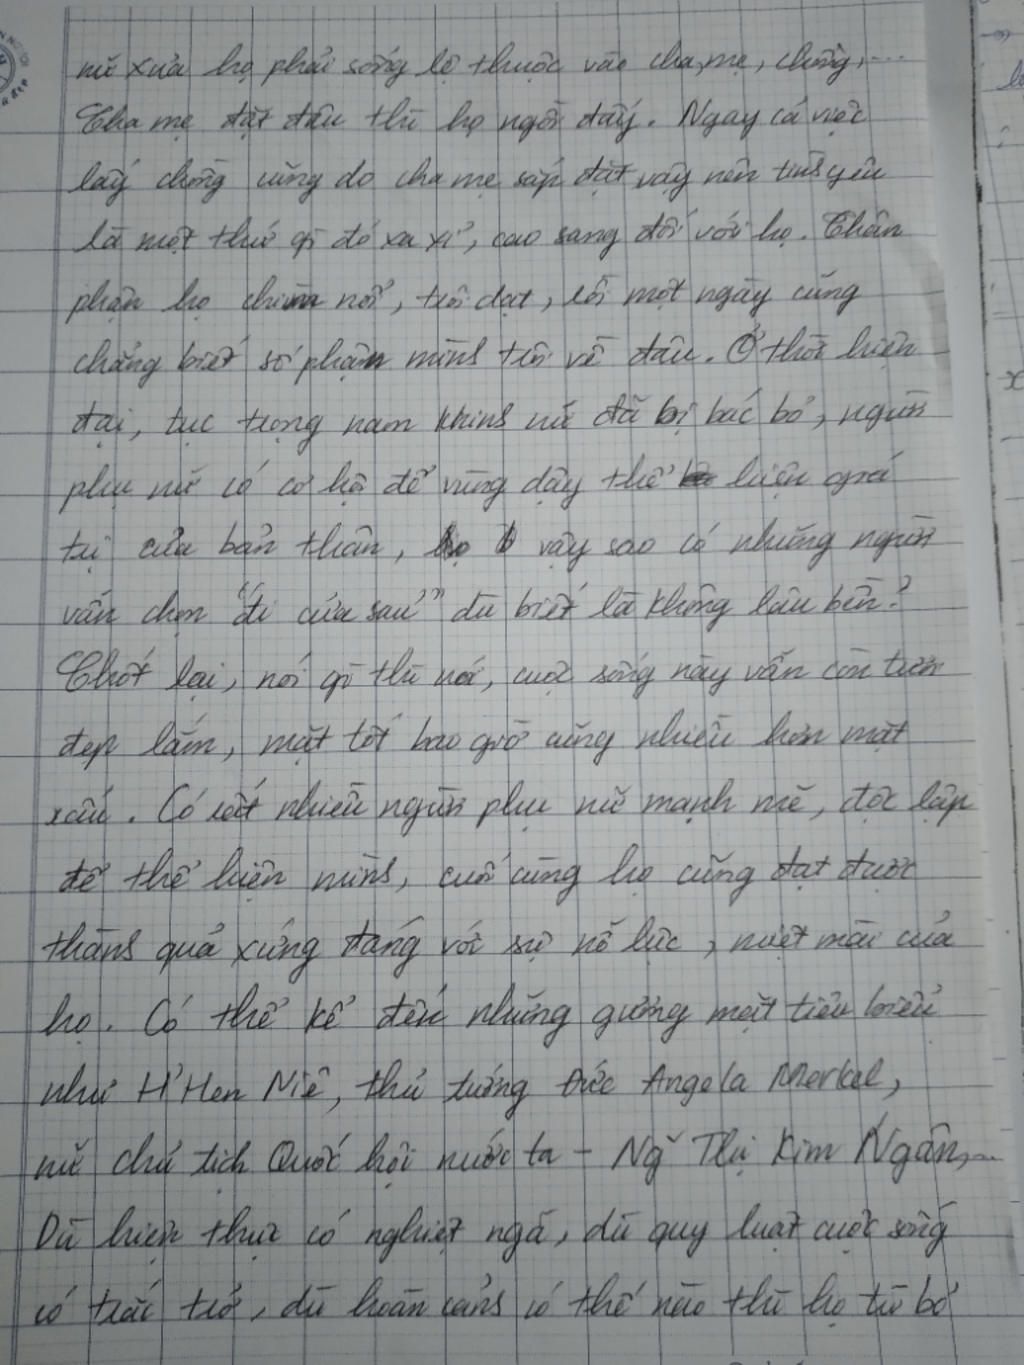 nữ xưa họ phải sống lệ thuộc vào cha, mẹ, chồng, ....
Cha mẹ đặt đâu thì họ ngồi đấy. Ngay cả việc
lấy chồng cũng do cha mẹ sắp đặt vậy nên tình yêu
là một thứ gì đó xa xỉ, cao sang đối với họ. Thân
phận họ chìm nổi, trôi dạt, rồi một ngày cũng
chẳng biết số phận mình trôi về đâu. Ở thời hiện
đại, tục trọng nam khinh nữ đã bị bác bỏ, người
phụ nữ có cơ hội để vùng dậy thể hiện giá
trị của bản thân, vậy sao có những người
vẫn chọn "đi cửa sau" dù biết là không lâu bền?
Chốt lại, nói gì thì nói, cuộc sống này vẫn còn tươi
đẹp lắm, mặt tốt bao giờ cũng nhiều hơn mặt
xấu. Có rất nhiều người phụ nữ mạnh mẽ, độc lập
để thể hiện mình, cuối cùng họ cũng đạt được
thành quả xứng đáng với sự nỗ lực, miệt mài của
họ. Có thể kể đến những gương mặt tiêu biểu
như H'Hen Niê, thủ tướng Đức Angela Merkel,
nữ chủ tịch Quốc hội nước ta - Ng~ Thị Kim Ngân,...
Dù hiện thực có nghiệt ngã, dù quy luật cuộc sống
có trắc trở, dù hoàn cảnh có thế nào thì họ từ bỏ